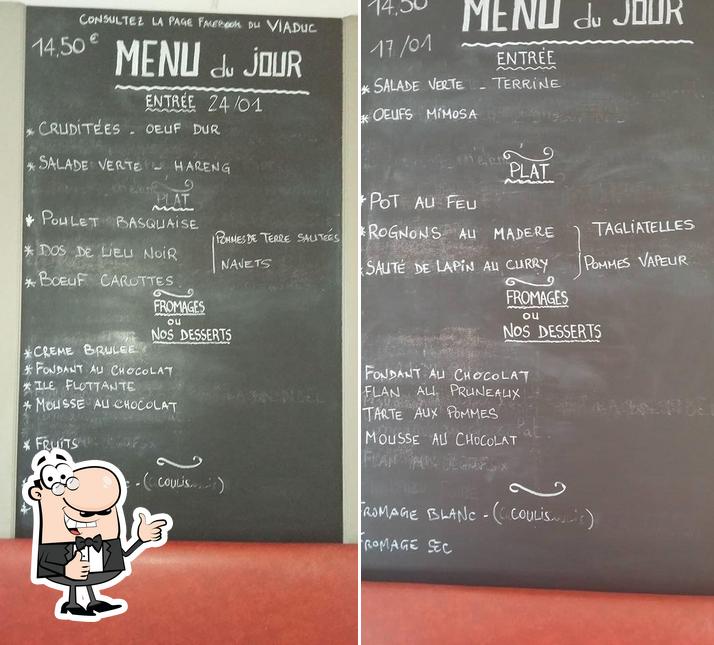 CONSULTEZ LA PAGE FACEBOOK DU VIADUC
14,50€
MENU du JOUR
ENTRÉE 24/01
* CRUDITÉES - OEUF DUR
* SALADE VERTE - HARENG
PLAT
* POULET BASQUAISE
* DOS DE LIEU NOIR
* BOEUF CAROTTES
POMMES DE TERRE SAUTÉES
NAVETS
FROMAGES
OU
NOS DESSERTS
* CREME BRULÉE
* FONDANT AU CHOCOLAT
* ILE FLOTTANTE
* MOUSSE AU CHOCOLAT
* FRUITS
- (COULIS)
14,50
MENU du JOUR
17/01
ENTRÉE
* SALADE VERTE - TERRINE
* OEUFS MIMOSA
PLAT
* POT AU FEU
* ROGNONS AU MADERE
* SAUTÉ DE LAPIN AU CURRY
TAGLIATELLES
POMMES VAPEUR
FROMAGES
OU
NOS DESSERTS
FONDANT AU CHOCOLAT
FLAN AU PRUNEAUX
TARTE AUX POMMES
MOUSSE AU CHOCOLAT
FROMAGE BLANC - (COULIS)
FROMAGE SEC